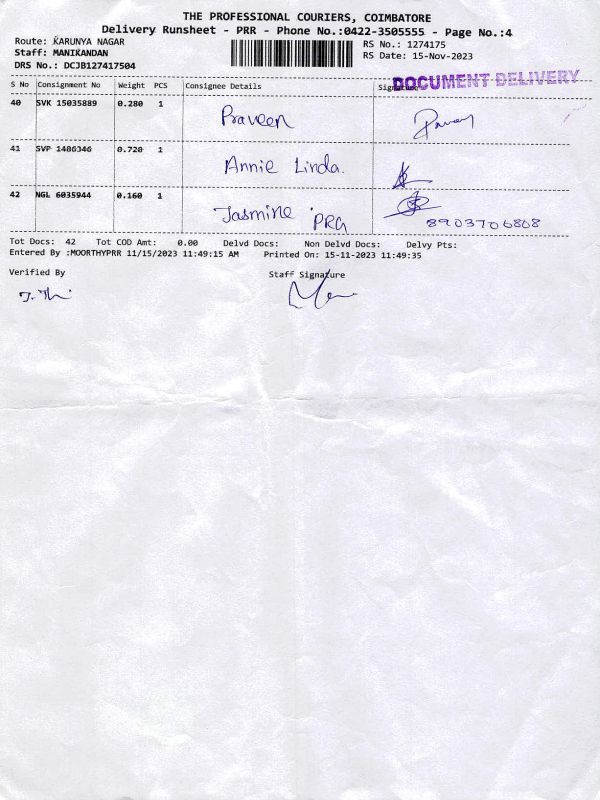 THE PROFESSIONAL COURIERS, COIMBATORE
Delivery Runsheet - PRR - Phone No.:0422-3505555 - Page No.:4
Route: KARUNYA NAGAR
Staff: MANIKANDAN
DRS No.: DCJB127417504
RS No.: 1274175
RS Date: 15-Nov-2023
DOCUMENT DELIVERY
S No Consignment No Weight PCS Consignee Details Signature
40 SVK 15035889 0.280 1 Praveen
41 SVP 1486346 0.720 1 Annie Linda.
42 NGL 6035944 0.160 1 Jasmine PRG
8903706808
Tot Docs: 42 Tot COD Amt: 0.00 Delvd Docs: Non Delvd Docs: Delvy Pts:
Entered By :MOORTHYPRR 11/15/2023 11:49:15 AM Printed On: 15-11-2023 11:49:35
Verified By Staff Signature